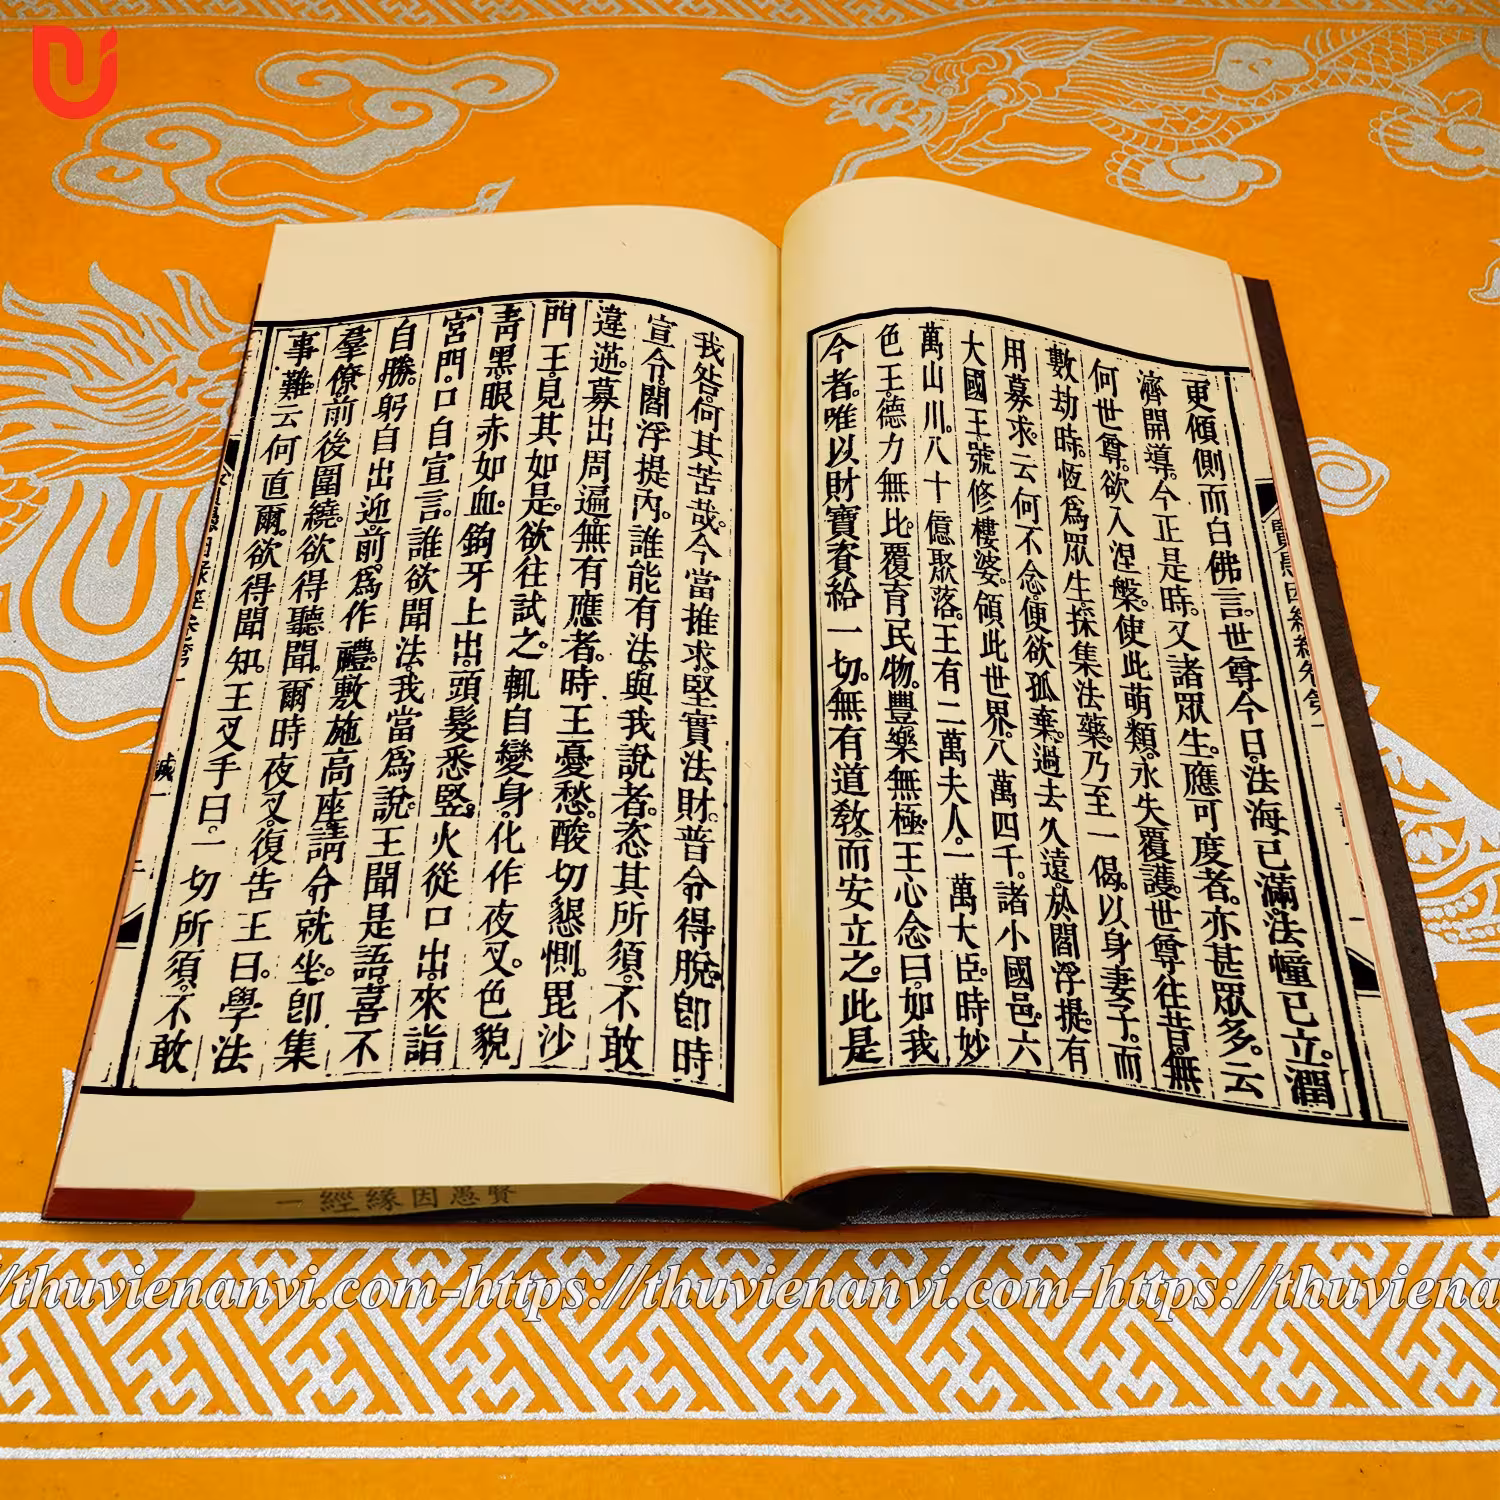 更傾側而白佛言。世尊今日。法海已滿。法幢已立。潤
濟開導。今正是時。又諸眾生。應可度者。亦甚眾多。云
何世尊。欲入涅槃。使此萌類。永失覆護。世尊往昔。無
數劫時。恆爲眾生。採集法藥。乃至一偈。以身妻子。而
用募求。云何不念。便欲孤棄。過去久遠。於閻浮提。有
大國王。號修樓婆。領此世界。八萬四千。諸小國邑。六
萬山川。八十億聚落。王有二萬夫人。一萬大臣。時妙
色王。德力無比。覆育民物。豐樂無極。王心念曰。如我
今者。唯以財寶資給一切。無有道教。而安立之。此是
我咎。何其苦哉。今當推求。堅實法財。普令得脫。卽時
宣令。閻浮提內。誰能有法。與我說者。恣其所須。不敢
違逆。募出周遍。無有應者。時王憂愁。酸切懇惻。毘沙
門王。見其如是。欲往試之。輒自變身。化作夜叉。色貌
靑黑。眼赤如血。鉤牙上出。頭髮悉豎。火從口出。來詣
宮門。口自宣言。誰欲聞法。我當爲說。王聞是語。喜不
自勝。躬自出迎。前爲作禮。敷施高座。請令就坐。卽集
羣僚。前後圍繞。欲得聽聞。爾時夜叉。復告王曰。學法
事難。云何直爾。欲得聞知。王叉手曰。一切所須。不敢
賢愚因緣經卷第一
誠一
賢愚因緣經 一
//thuvienanvi.com-https://thuvienanvi.com-https://thuviena